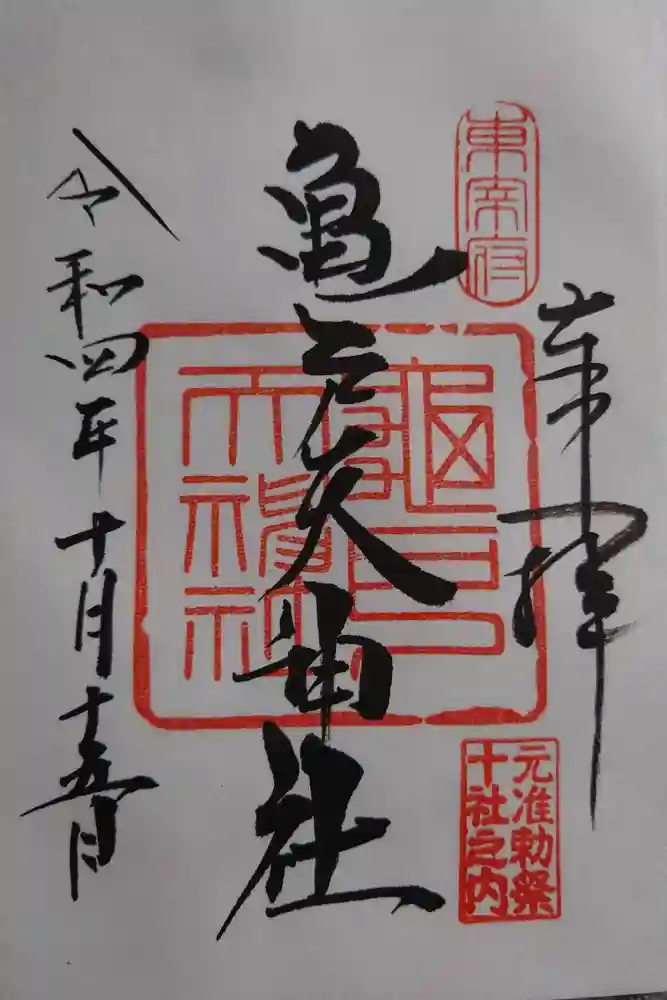 奉拝
東宰府
亀戸天神社
亀戸天神社
元准勅祭
十社之内
令和四年十月十五日